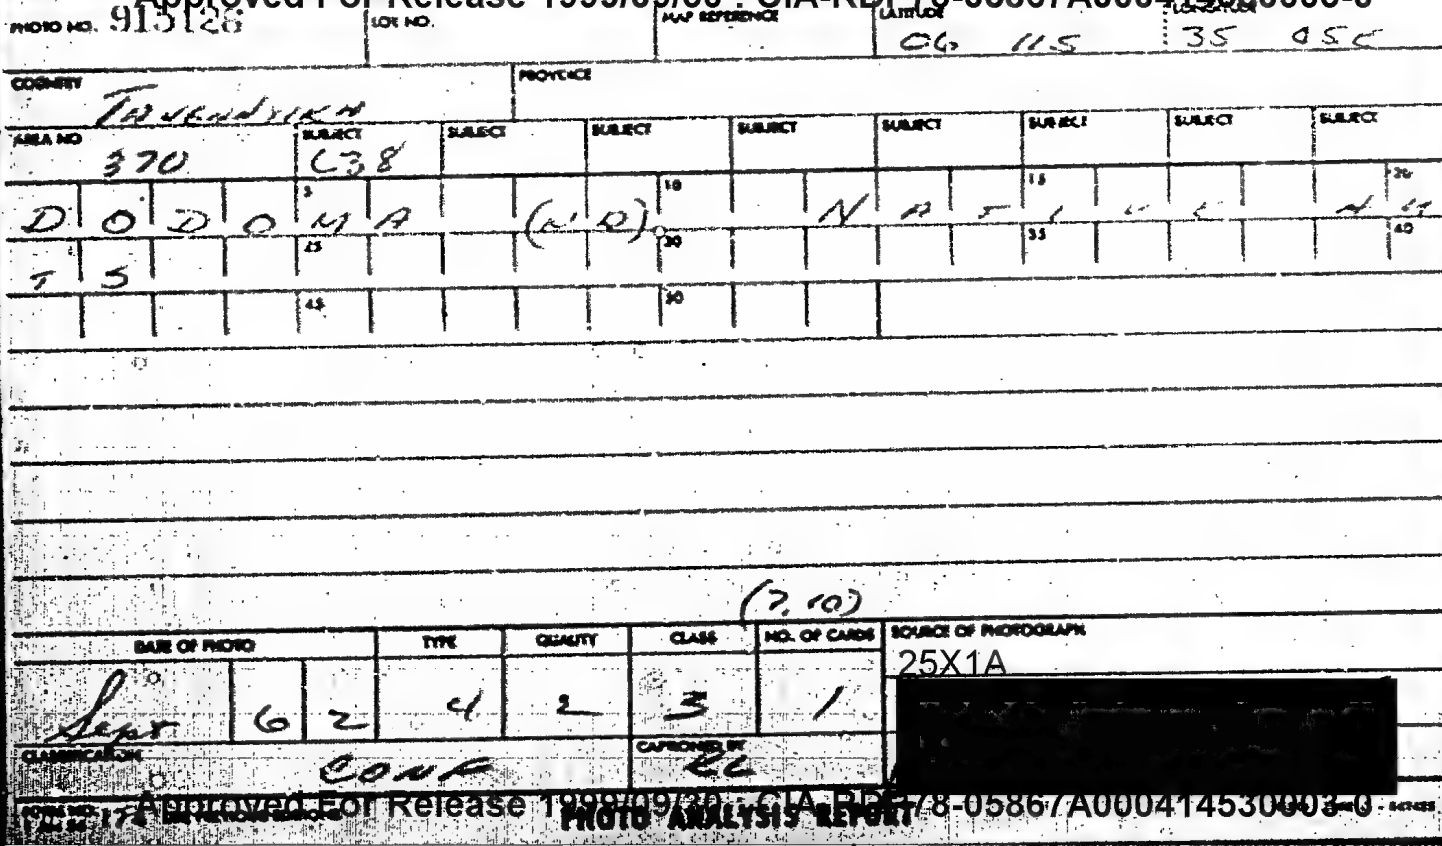 Approved For Release 1999/09/30 : CIA-RDP78-05867A000414530003-0
PHOTO NO. 915128 LOT NO. MAP REFERENCE LATITUDE 06 11S LONGITUDE 35 45E
COUNTRY PROVINCE
AREA NO 370 SUBJECT C38 SUBJECT SUBJECT SUBJECT SUBJECT SUBJECT SUBJECT SUBJECT
5 10 15 20
DODOMA (NR). NATIVE HU
25 30 35 40
TS
45 50
(7.10)
DATE OF PHOTO TYPE QUALITY CLASS NO. OF CARDS SOURCE OF PHOTOGRAPH
25X1A
Sept 6 2 4 2 3 1
CLASSIFICATION CONF CAPTIONED BY
Approved For Release 1999/09/30 : CIA-RDP78-05867A000414530003-0
PHOTO ANALYSIS REPORT